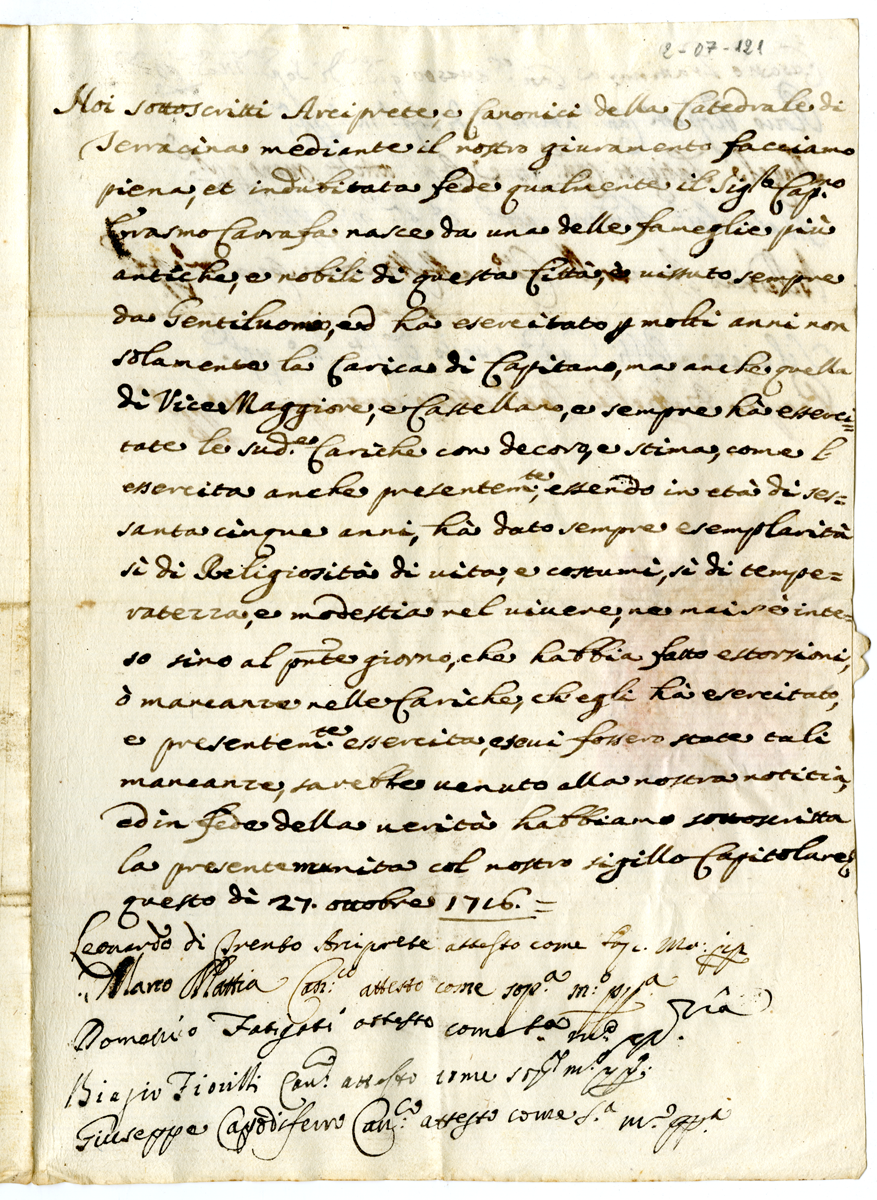 2-07-121
Noi sottoscritti Arciprete, e Canonici della Catedrale di
Terracina mediante il nostro giuramento facciamo
piena, et indubitata fede qualmente il Sig.r Cap.no
Errasmo Carrafa nasce da una delle fameglie più
antiche, e nobili di questa Città, è vissuto sempre
da Gentiluomo, ed hà esercitato p molti anni non
solamente la Carica di Capitano, ma anche quella
di Vice Maggiore, e Castellano, e sempre hà esserci=
tate le sud.e Cariche con decoro, e stima, come l
essercita anche presentem.te, essendo in età di ses=
santacinque anni, hà dato sempre esemplarità
sì di Religiosità di vita, e costumi, sì di tempe=
ratezza, e modestia nel vivere, ne mai s'è inte=
so sino al pnte giorno, che habbia fatto estorsioni,
ò mancanze nelle Cariche, ch'egli hà esercitato,
e presentem.te essercita, e se vi fossero state tali
mancanze, sarebbe venuto alla nostra notitia,
ed in fede della verità habbiamo sottoscritta
la presente munita col nostro sigillo Capitolare
questo dì 27. ottobre 1716. =
Leonardo di Trento Arciprete attesto come
Marco Mattia Can.co attesto come sop.a m.o pp.a
Domenico Fatigati attesto come s.a
Biagio Fiorilli Can.co attesto come sop.a m.o pp.
Giuseppe Capodiferro Can.co attesto come s.a m.o pp.a